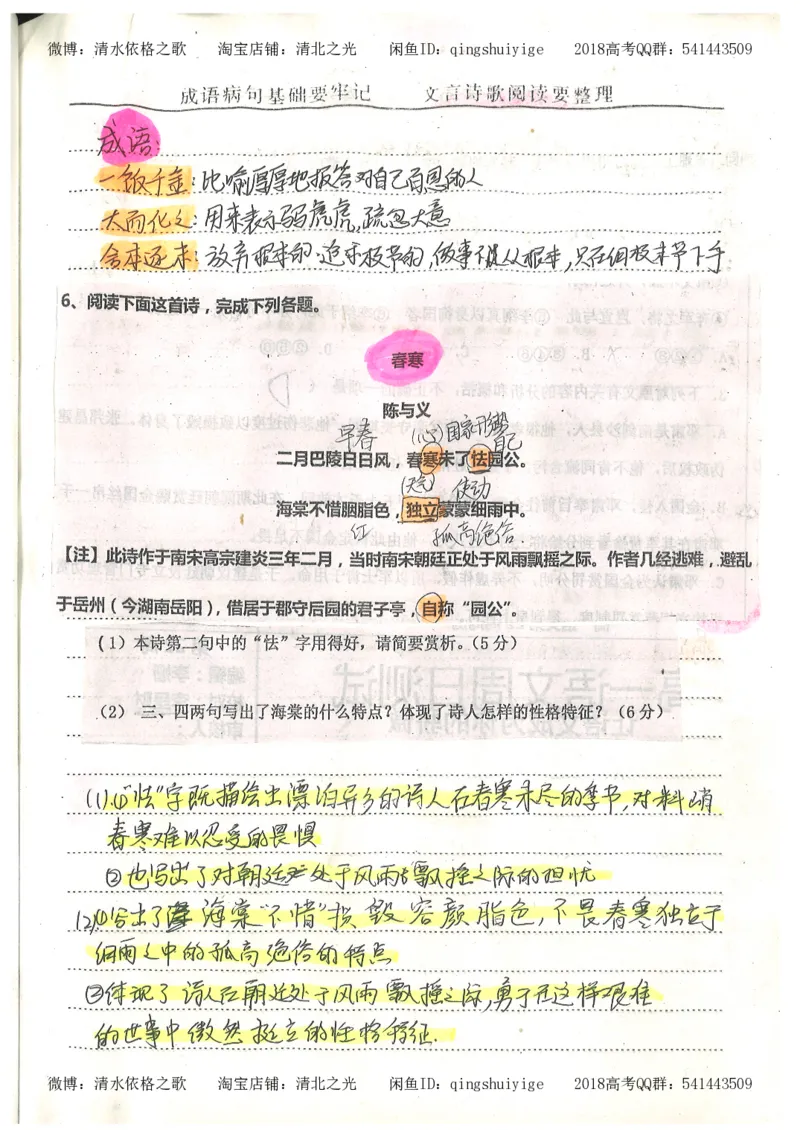 微博：清水依格之歌 淘宝店铺：清北之光 闲鱼ID：qingshuiyige 2018高考QQ群：541443509
成语病句基础要牢记 文言诗歌阅读要整理
成语：
一饭千金：比喻厚厚地报答对自己有恩的人
大而化之：用来表示马虎，疏忽大意
舍本逐末：放弃根本的，追求枝节的，做事不从根本，只在细枝末节下手
6、阅读下面这首诗，完成下列各题。
春寒
陈与义
早春 (心)国家形势 自己
二月巴陵日日风，春寒未了怯园公。
(天气) 使动
海棠不惜胭脂色，独立蒙蒙细雨中。
红 孤高绝俗
【注】此诗作于南宋高宗建炎三年二月，当时南宋朝廷正处于风雨飘摇之际。作者几经逃难，避乱
于岳州（今湖南岳阳），借居于郡守后园的君子亭，自称“园公”。
(1）本诗第二句中的“怯”字用得好，请简要赏析。（5分）
（2） 三、四两句写出了海棠的什么特点？体现了诗人怎样的性格特征？（6分）
(1).①“怯”字既描绘出漂泊异乡的诗人在春寒未尽的季节，对料峭
春寒难以忍受的畏惧
②也写出了对朝廷处于风雨飘摇之际的担忧
(2)①写出了海棠“不惜”损毁容颜脂色，不畏春寒独立于
细雨之中的孤高绝俗的特点
②体现了诗人在朝廷处于风雨飘摇之际，勇于在这样艰难
的世事中傲然挺立的性格特征.
微博：清水依格之歌 淘宝店铺：清北之光 闲鱼ID：qingshuiyige 2018高考QQ群：541443509